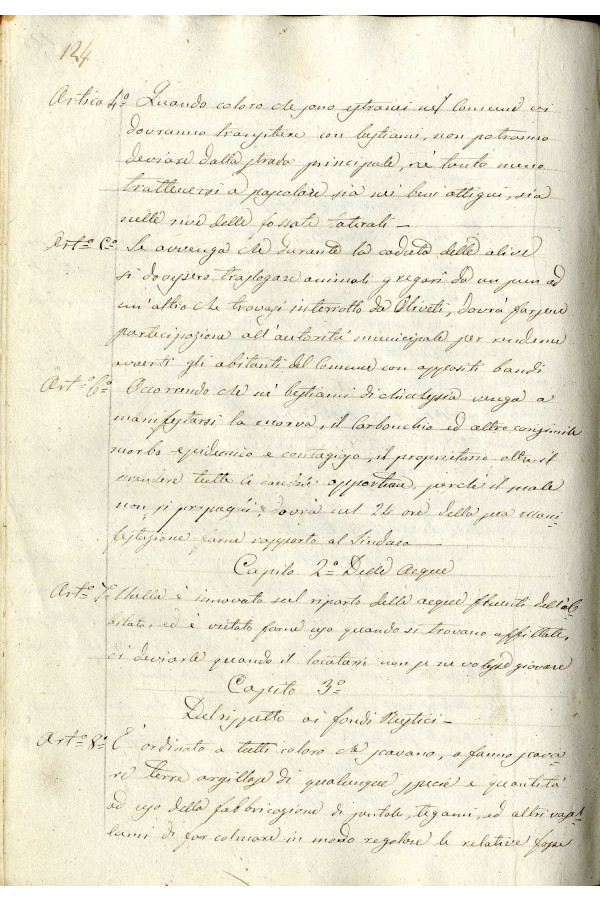 124
Artico 4º Quando coloro che sono estranei nel Comune vi
dovranno transitare con bestiami, non potranno
deviare dalla strada principale, nè tanto meno
trattenersi a pascolare sia nei beni attigui, sia
nelle rive delle fossate laterali —
Artº 5º Se avvenga che durante la caduta delle olive
si dovessero traslogare animali gregari da un pun ad
un'altro che trovasi interrotto da Oliveti, dovrà farsene
partecipazione all'autorità municipale per renderne
avverti gli abitanti del Comune con appositi bandi
Artº 6º Occorrendo che nè bestiami di chicchesia venga a
manifestarsi la morva, il Carbonchio ed altro consimile
morbo epidemico e contagioso, il proprietario oltre il
prendere tutte le cautele opportune, perchè il male
non si propaghi, dovrà nel 24 ore della sua mani-
festazione farne rapporto al Sindaco —
Capito 2º Delle acque
Artº 7º Nulla è innovato sul riparto delle acque fluenti dell'ab-
itato, ed e vietato farne uso quando si trovano affittate,
di deviarle quando il locatario non se ne volesse giovare
Capito 3º
Del rispetto ai fondi Rustici —
Artº 8º E' ordinato a tutti coloro che scavano, o fanno scava-
re terre argillose di qualunque specie e quantità
ad uso della fabbricazione di pentole, tegami, ed altri vasel-
lami di far colmare in modo regolare le relative fosse